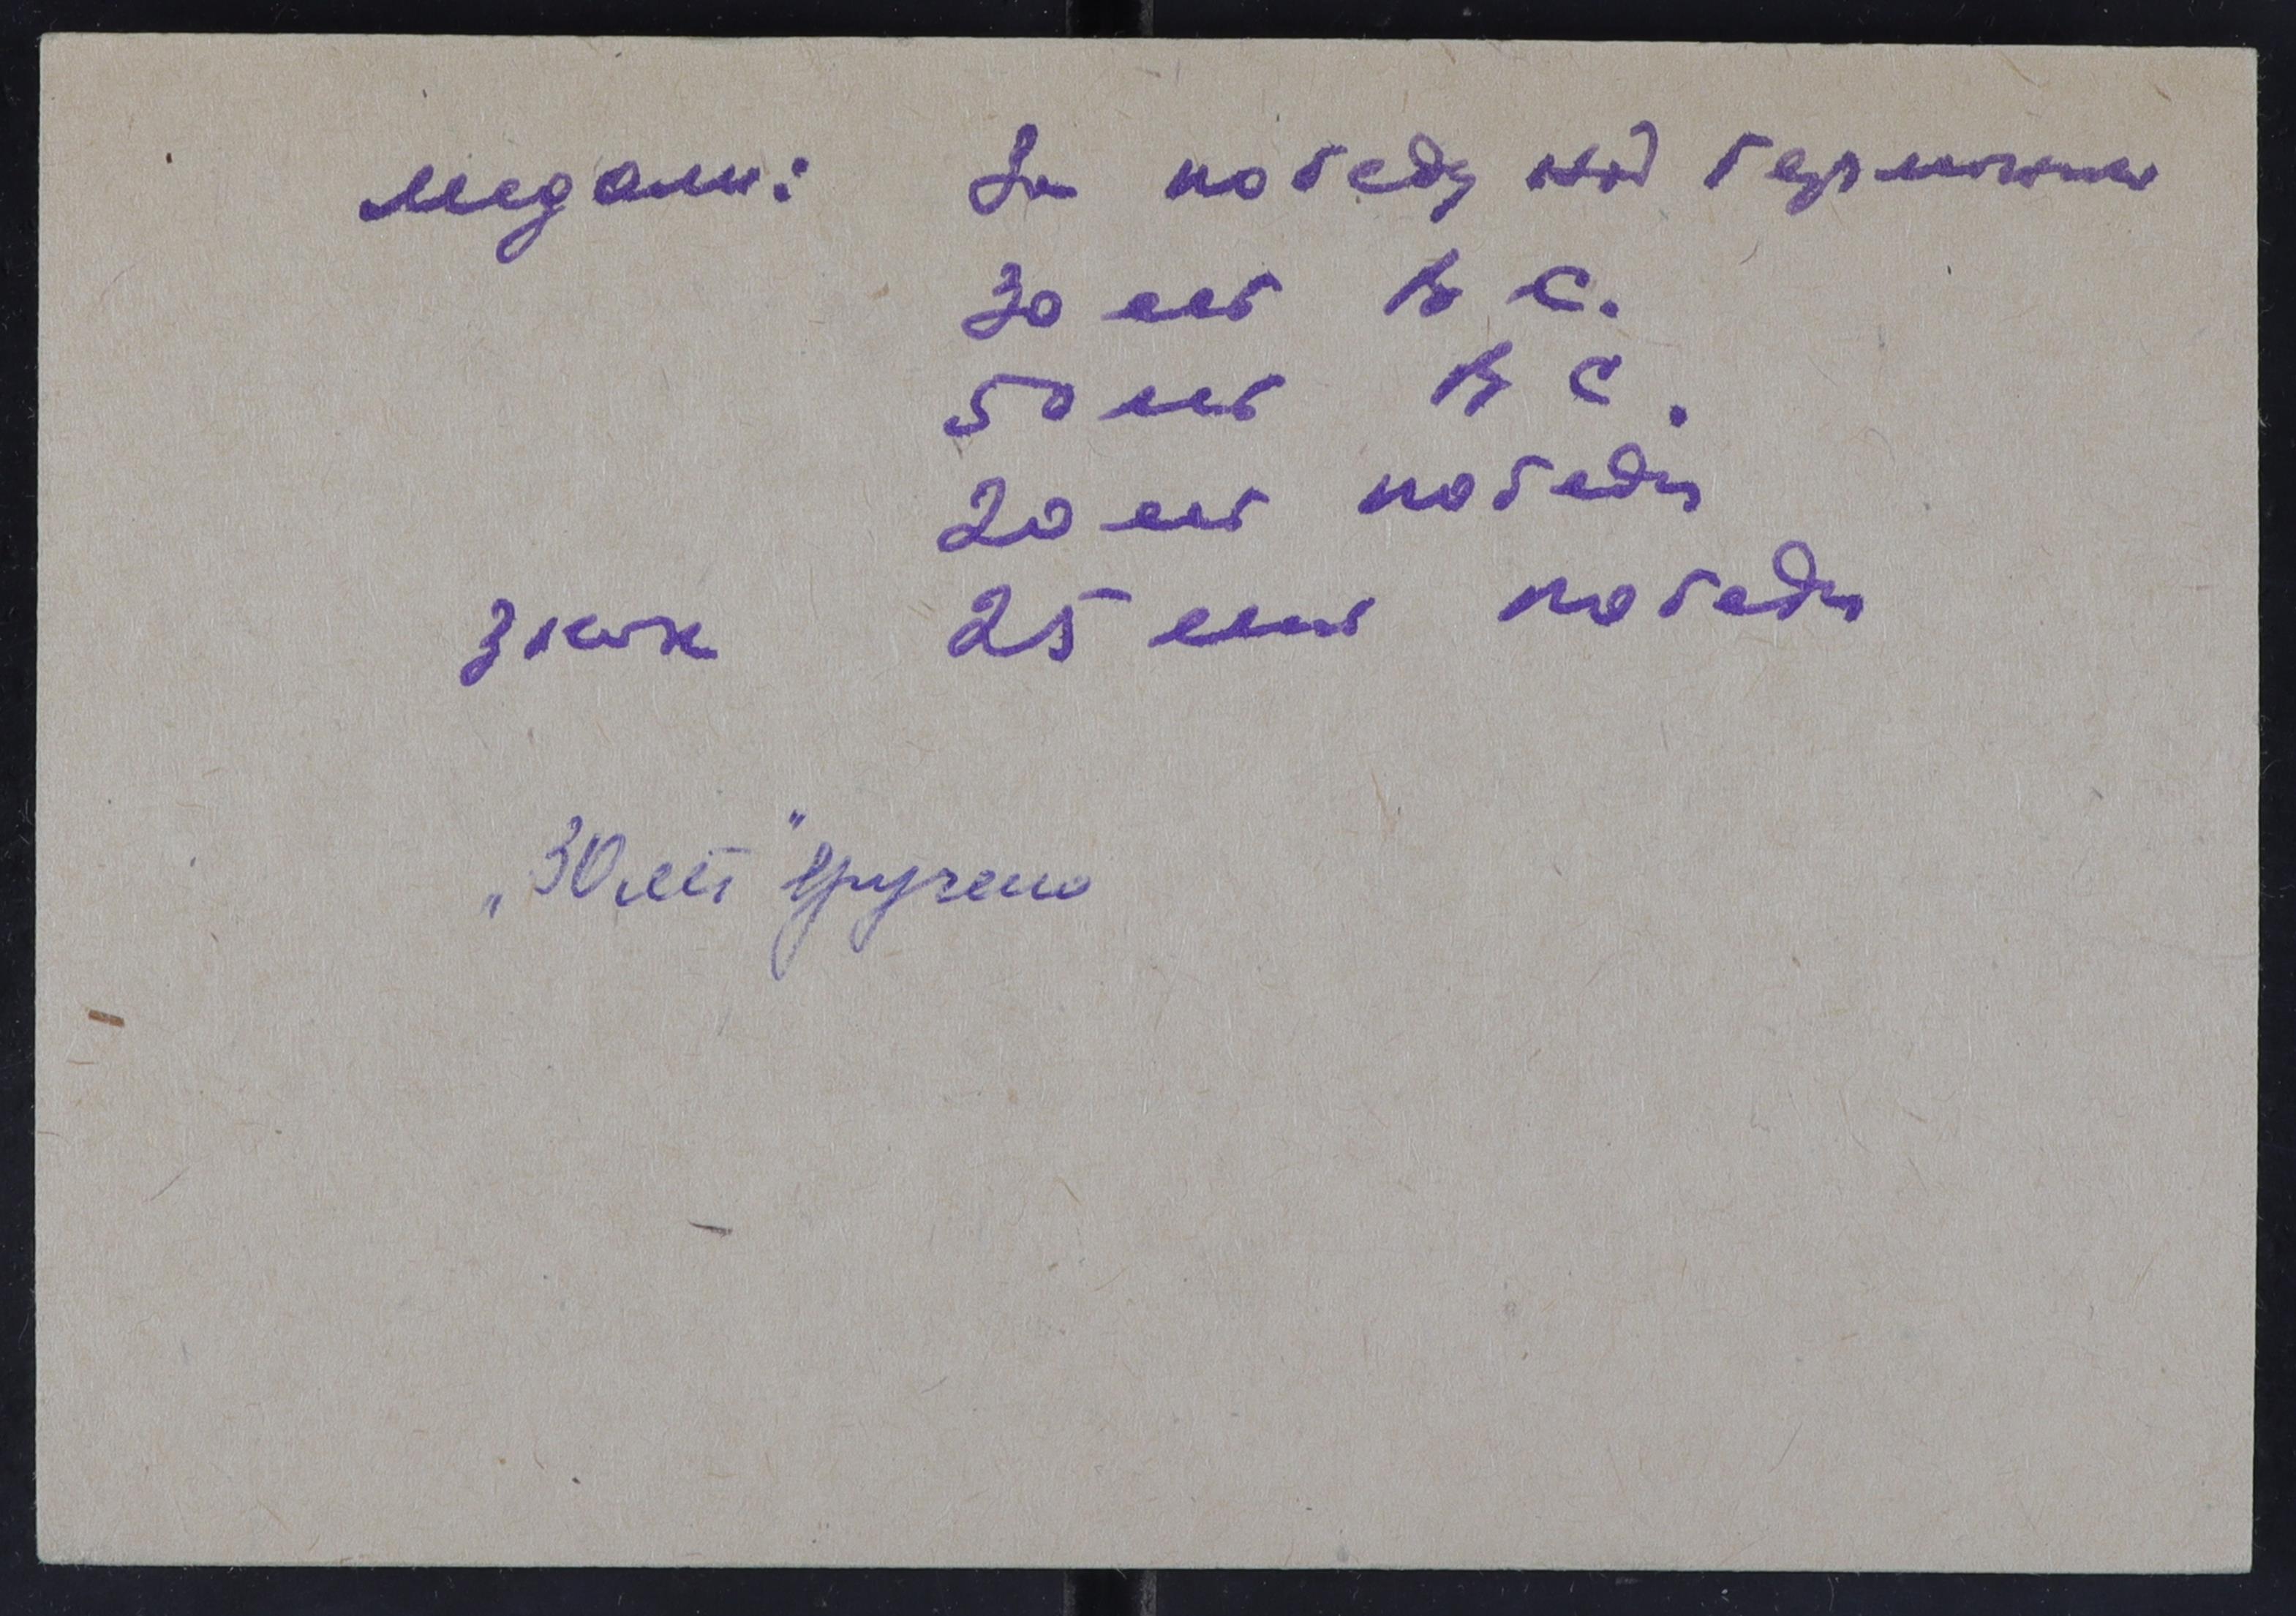 медали: За победу над Германией
30 лет В С.
50 лет В С.
20 лет победы
знак 25 лет победы
„30 лет" вручено